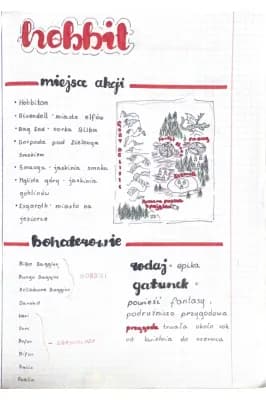 hobbit
miejsca akcji
• Hobbiton
• Rivendell - miasto elfów
• Bag End - norka Bilba
• Gospoda pod Zielonym
Smokiem
• Smauga - jaskinia smoka
• Mgliste góry - jaskinia
goblinów
• Esgaroth - miasto na
jeziorze
bohaterowie
Bilbo Baggins
Bungo Baggins
Belladonna Baggins
HOBBICI
Gandalf
Nori
Dori
Bofur
Bifur
rodzaj - epika
gatunek -
powieść fantasy,
podróżniczo przygodowa
przygoda trwała około rok
od kwietnia do czerwca